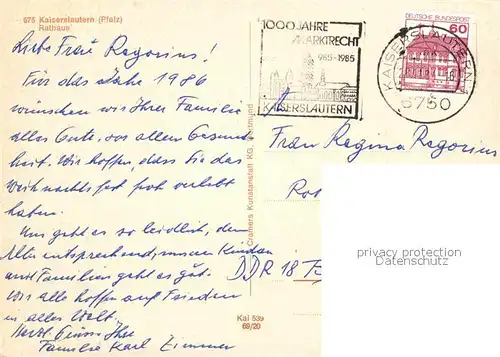 675 Kaiserslautern (Pfalz)
Rathaus
Liebe Frau Regorius!
Für das Jahr 1986
wünschen wir Ihrer Familie
alles Gute, vor allem Gesund-
heit. Wir hoffen, dass Sie das
Weihnachtsfest froh verlebt
haben.
Uns geht es so leidlich, dem
Alter entsprechend, unseren Kindern
und Familien geht es gut.
Wir alle hoffen auf Frieden
in aller Welt.
Herzl. Grüsse Ihre
Familie Karl Zimmer
Cramers Kunstanstalt KG, Dortmund
Kai 539
69/20
1000 JAHRE
MARKTRECHT
985-1985
KAISERSLAUTERN
DEUTSCHE BUNDESPOST
60
KAISERSLAUTERN 1
6750
Frau Regina Regorius
DDR 18
privacy protection
Datenschutz